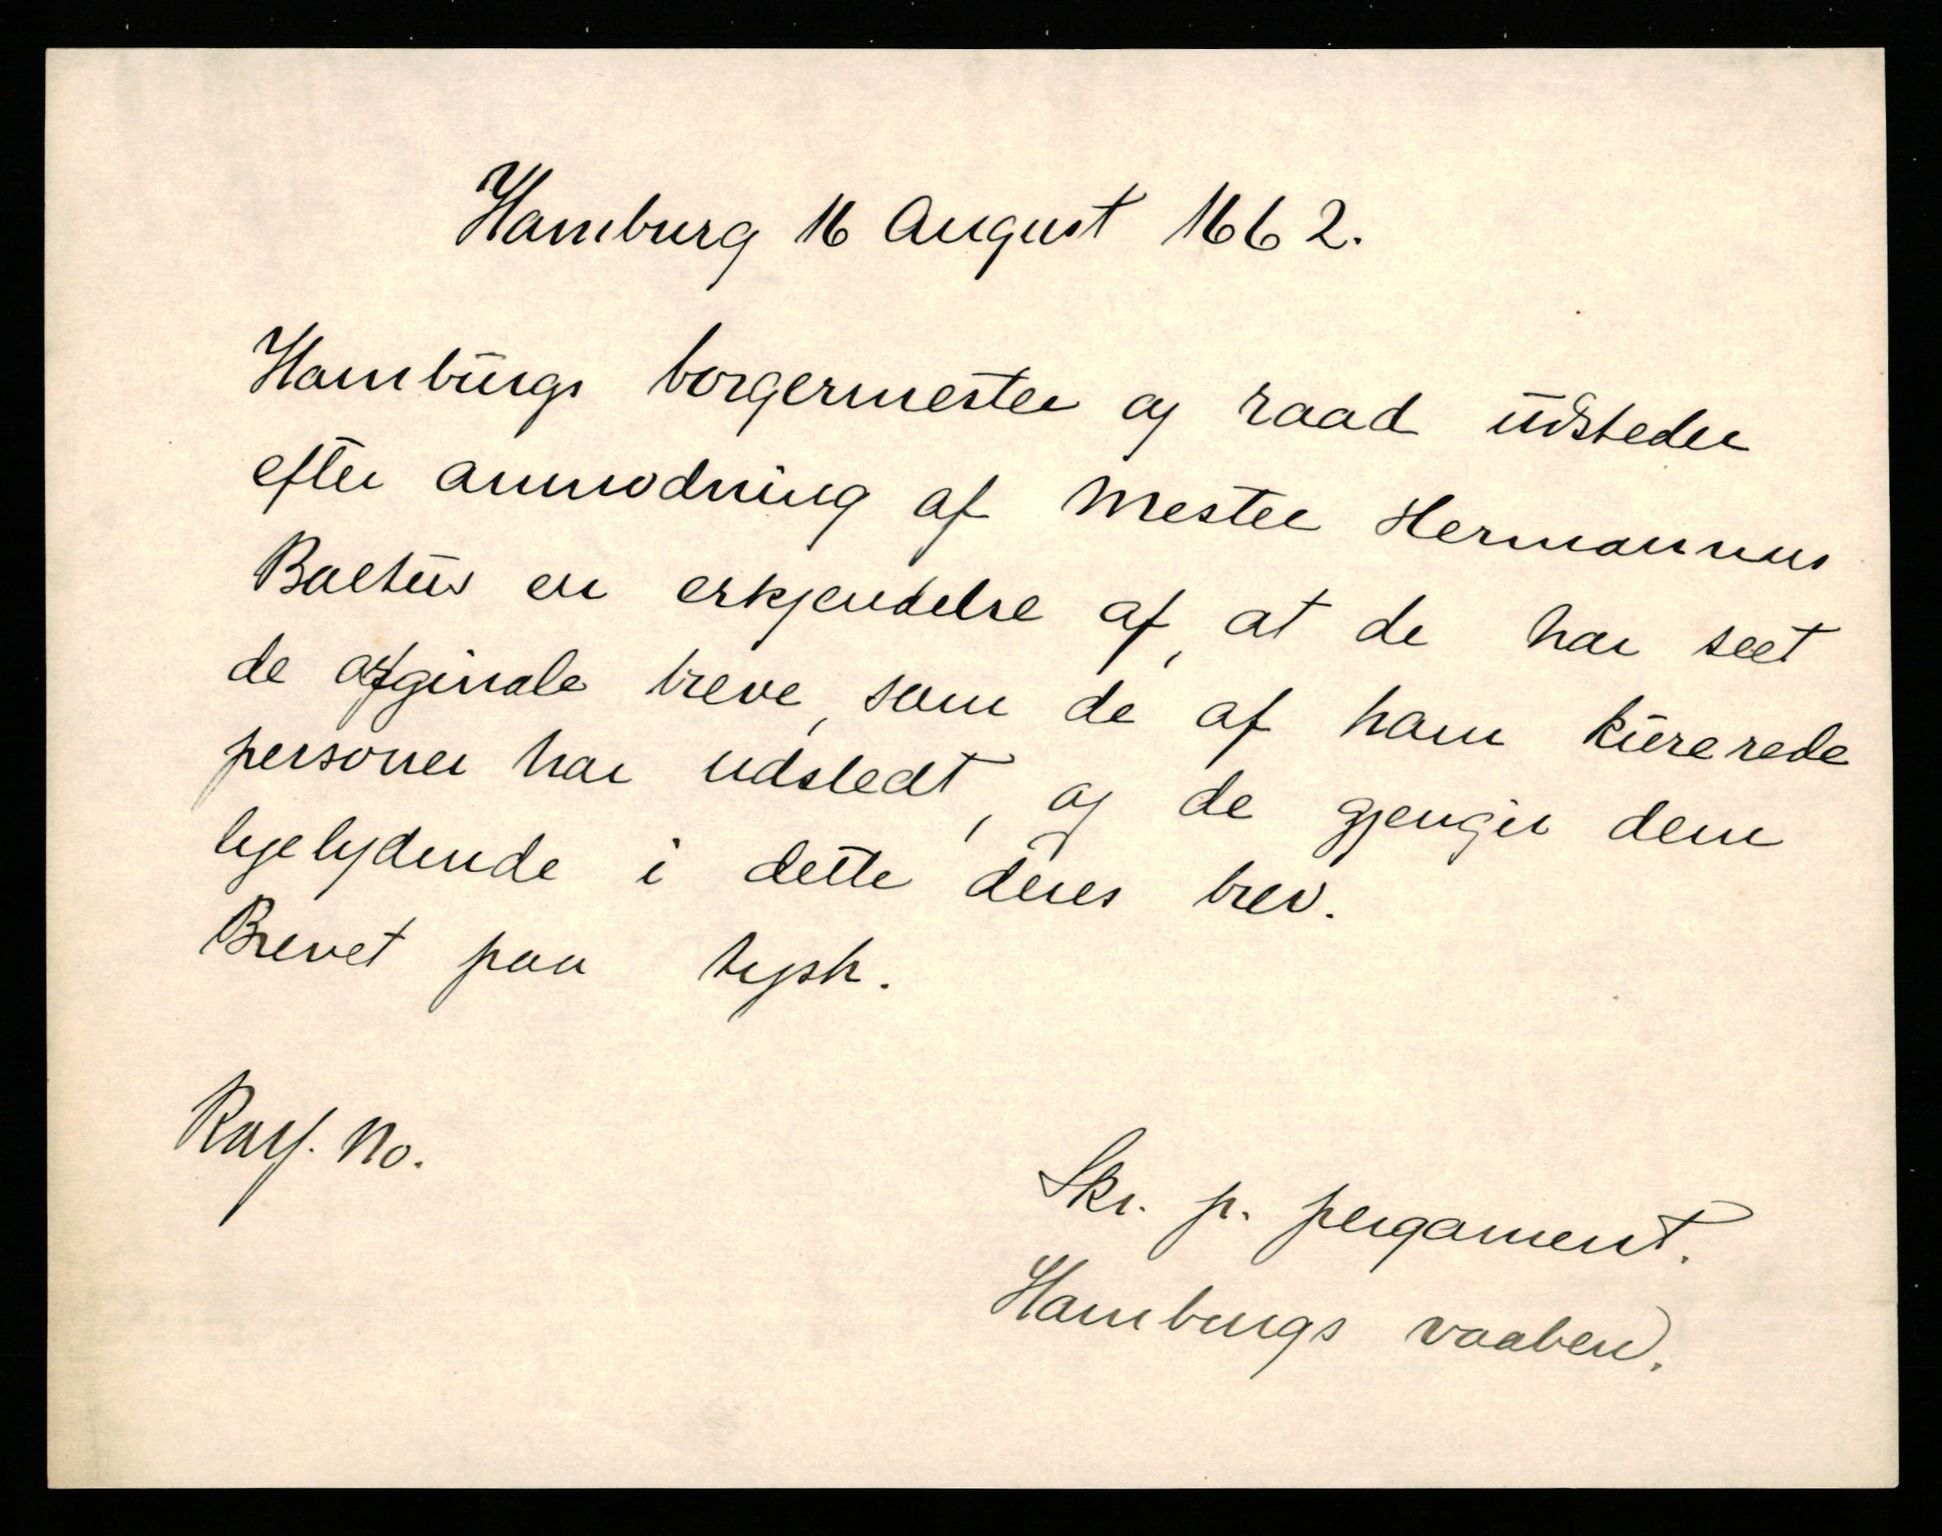 Hamburg 16 August 1662.
Hambūrgs borgermester og raad ūdsteder
efter anmodning af Mester Hermannus
en erkjendelse af, at de har seet
de orginale breve, som de af ham kūrerede
personer har udstedt, og de gjengir dem
lyelydende i dette deres brev.
Brevet paa tysk.
No.
Skr. p. pergament.
Hamburgs vaaben.